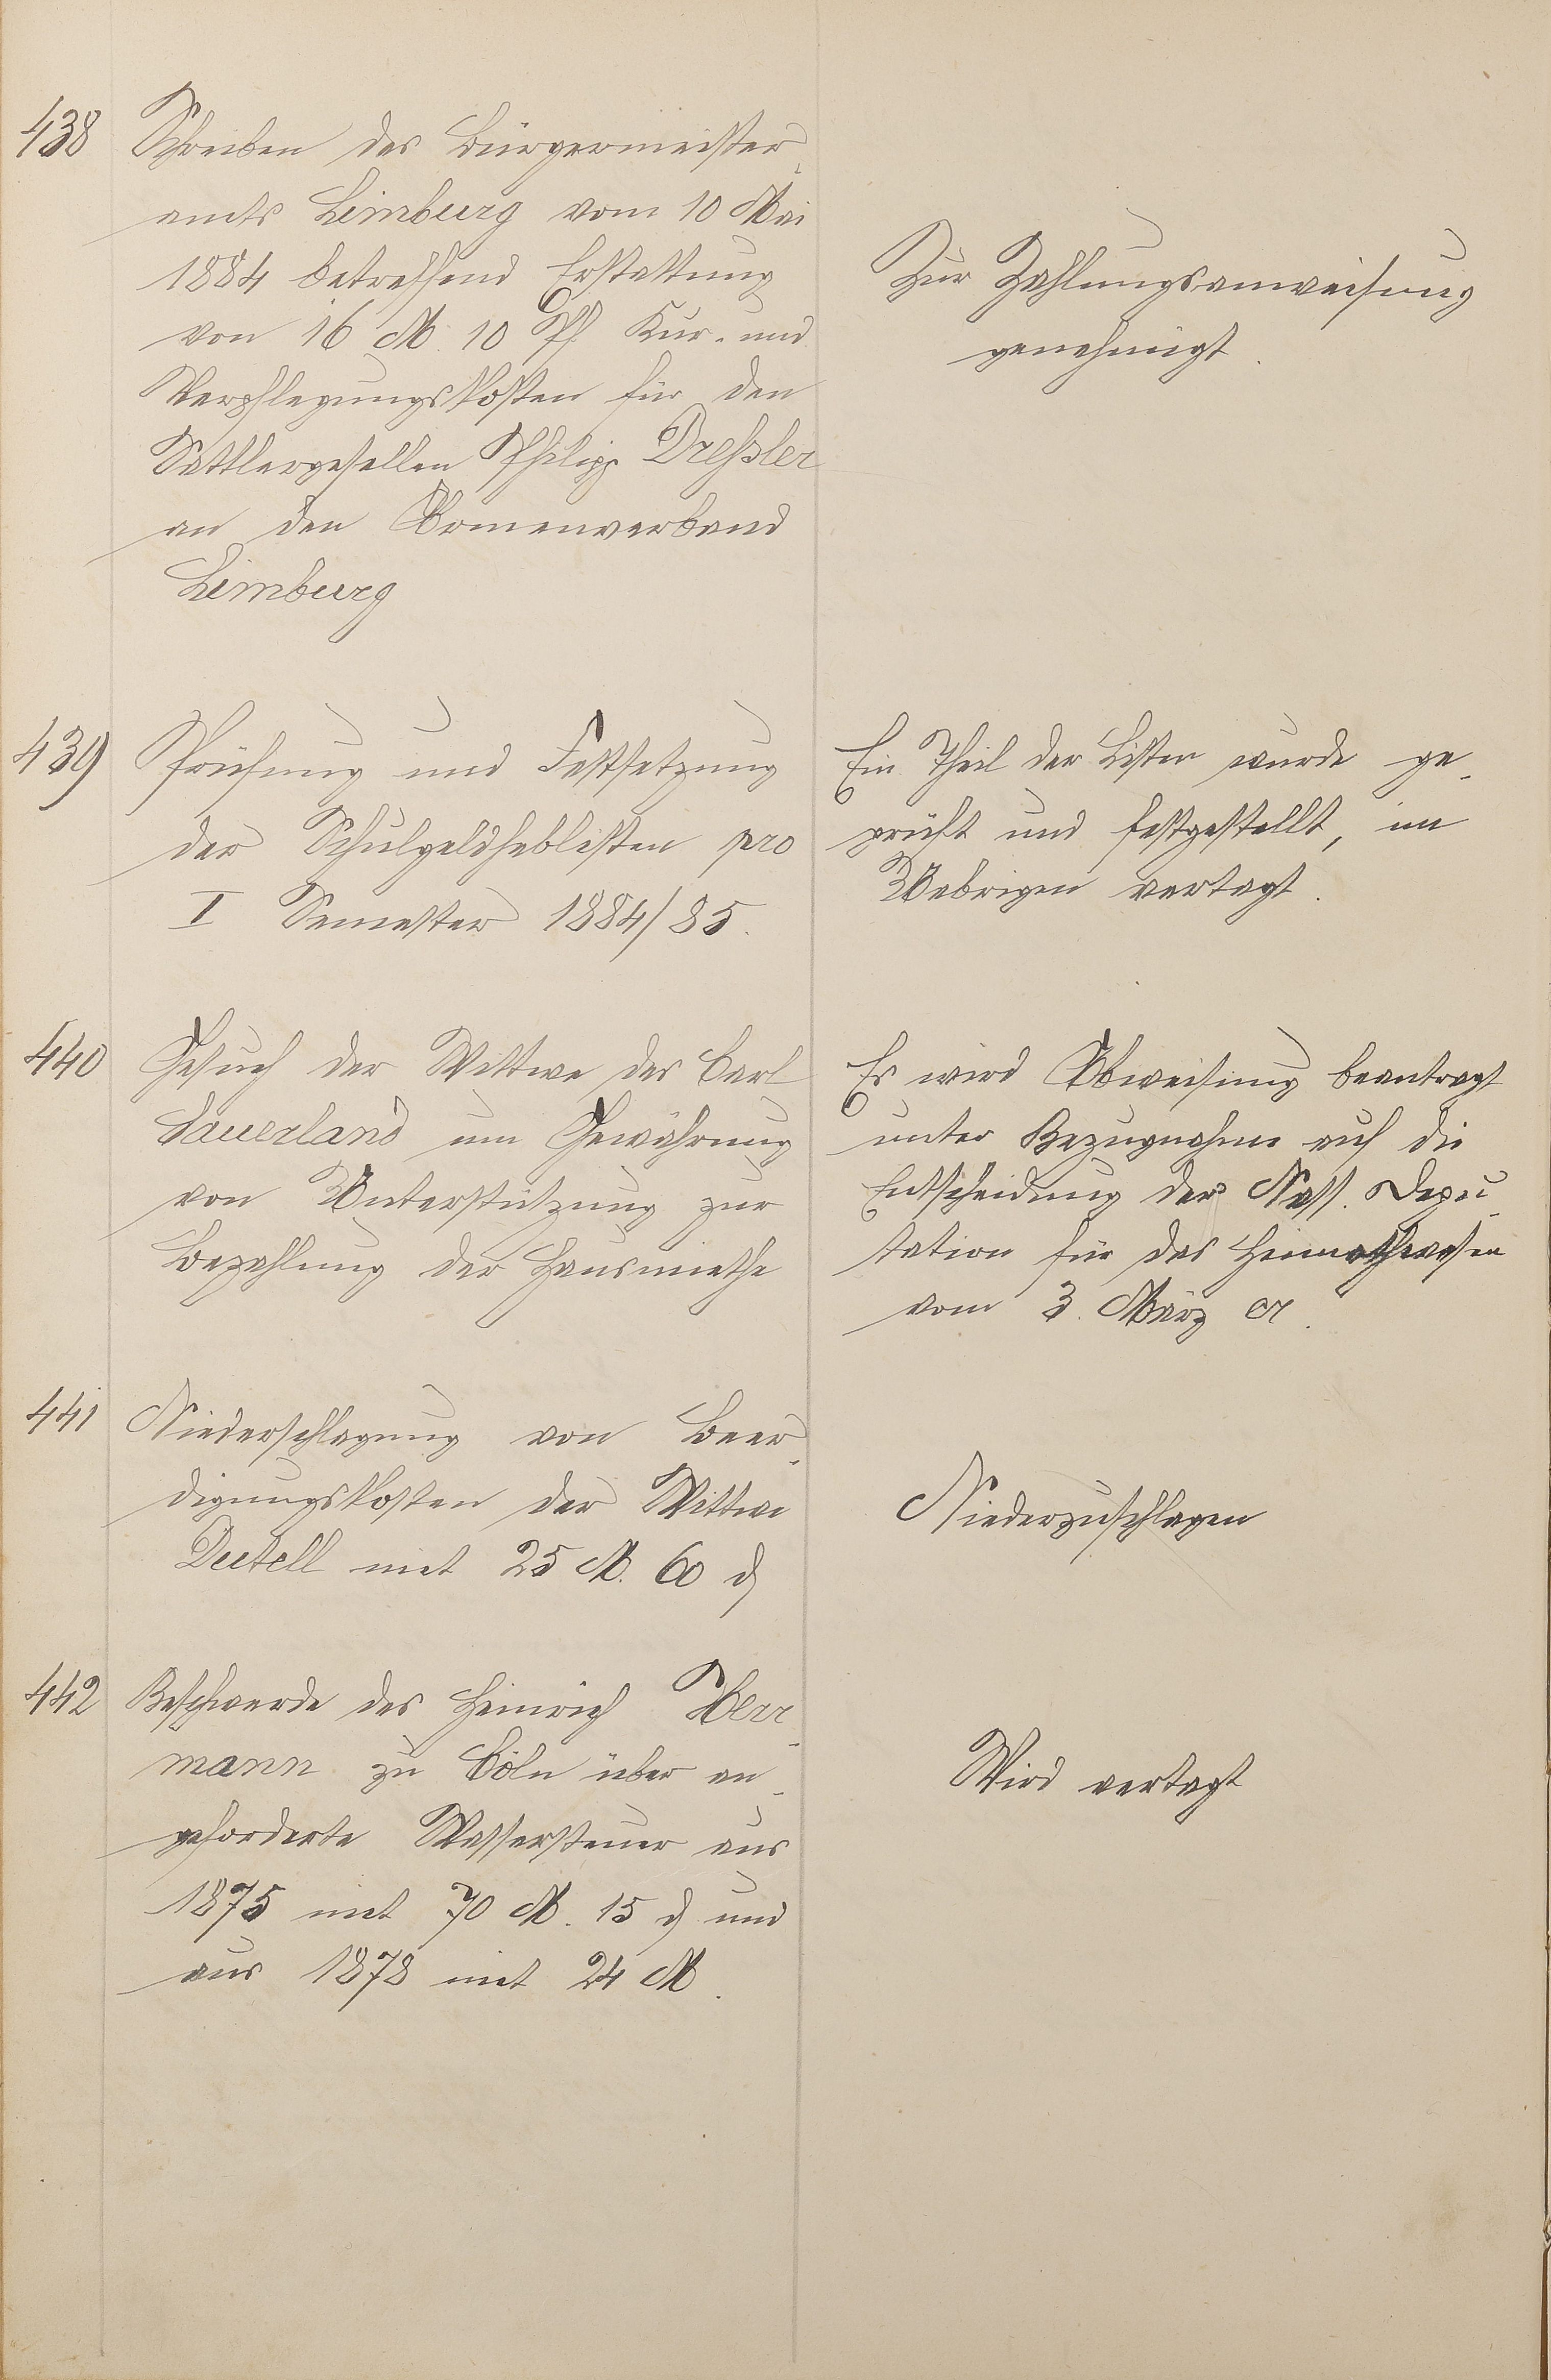 438
Schreiben des Bürgermeister-
amts Limburg vom 10 Mai
1884 betreffend Erstattung
von 16 M. 10 Pf Kur- und
Verpflegungskosten für den
Sattlergesellen Philipp Dreßler
an den Armenverband
Limburg
Zur Zahlungsanweisung
genehmigt.
439
Prüfung und Festsetzung
der Schulgeldheblisten pro
I Semester 1884/85.
Ein Theil der Listen wurde ge-
prüft und festgestellt, im
Uebrigen vertagt.
440
Gesuch der Wittwe des Carl
Sauerland um Gewährung
von Unterstützung zur
Bezahlung der Hausmiethe
Es wird Abweisung beantragt
unter Bezugnahme auf die
Entscheidung der Nass. Depu-
tation für das Heimathwesen
vom 3. März cr.
441
Niederschlagung von Beer-
digungskosten der Wittwe
Deetell mit 25 M. 60 ₰
Niederzuschlagen
442
Beschwerde des Heinrich Herr-
mann zu Cöln über an-
geforderte Wassersteuer aus
1875 mit 70 M. 15 ₰ und
aus 1878 mit 24 M.
Wird vertagt